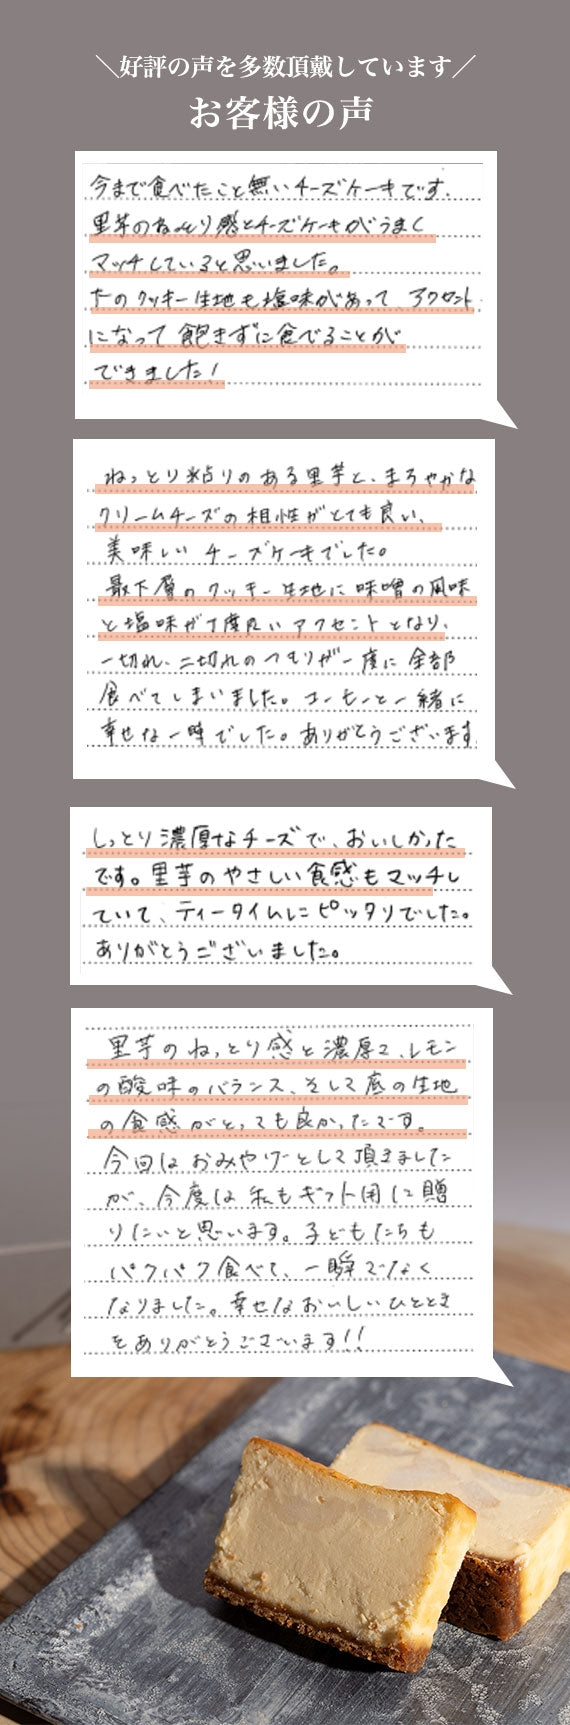 ＼好評の声を多数頂戴しています／
お客様の声
今まで食べたこと無いチーズケーキです.
里芋のねっとり感とチーズケーキがうまく
マッチしていると思いました。
下のクッキー生地も塩味があって、アクセント
になって飽きずに食べることが
できました!
ねっとり粘りのある里芋と、まろやかな
クリームチーズの相性がとても良い、
美味しいチーズケーキでした。
最下層のクッキー生地に味噌の風味
と塩味が丁度良いアクセントとなり、
一切れ、二切れのつもりが一度に全部
食べてしまいました。コーヒーと一緒に
幸せな一時でした。ありがとうございます
しっとり濃厚なチーズで、おいしかった
です。里芋のやさしい食感もマッチし
ていて、ティータイムにピッタリでした。
ありがとうございました。
里芋のねっとり感と濃厚さ、レモン
の酸味のバランス、そして底の生地
の食感がとっても良かったです。
今回はおみやげとして頂きました
が、今度は私もギフト用に贈
りたいと思います。子どもたちも
パクパク食べて、一瞬でなく
なりました。幸せなおいしいひととき
をありがとうございます!!